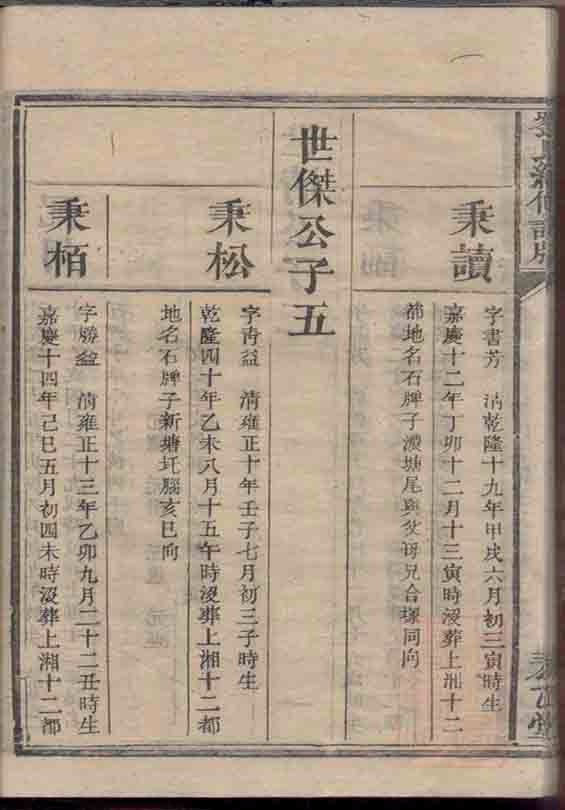 秉讀
字書芳 清乾隆十九年甲戌六月初三寅時生
嘉慶十二年丁卯十二月十三寅時沒葬上湘十二
都地名石牌子濃塘尾與父母兄合塚同向
世傑公子五
秉松
字青益 清雍正十年壬子七月初三子時生
乾隆四十年乙未八月十五午時沒葬上湘十二都
地名石牌子新塘圫腦亥巳向
秉栢
字勝益 清雍正十三年乙卯九月二十二丑時生
嘉慶十四年己巳五月初四未時沒葬上湘十二都